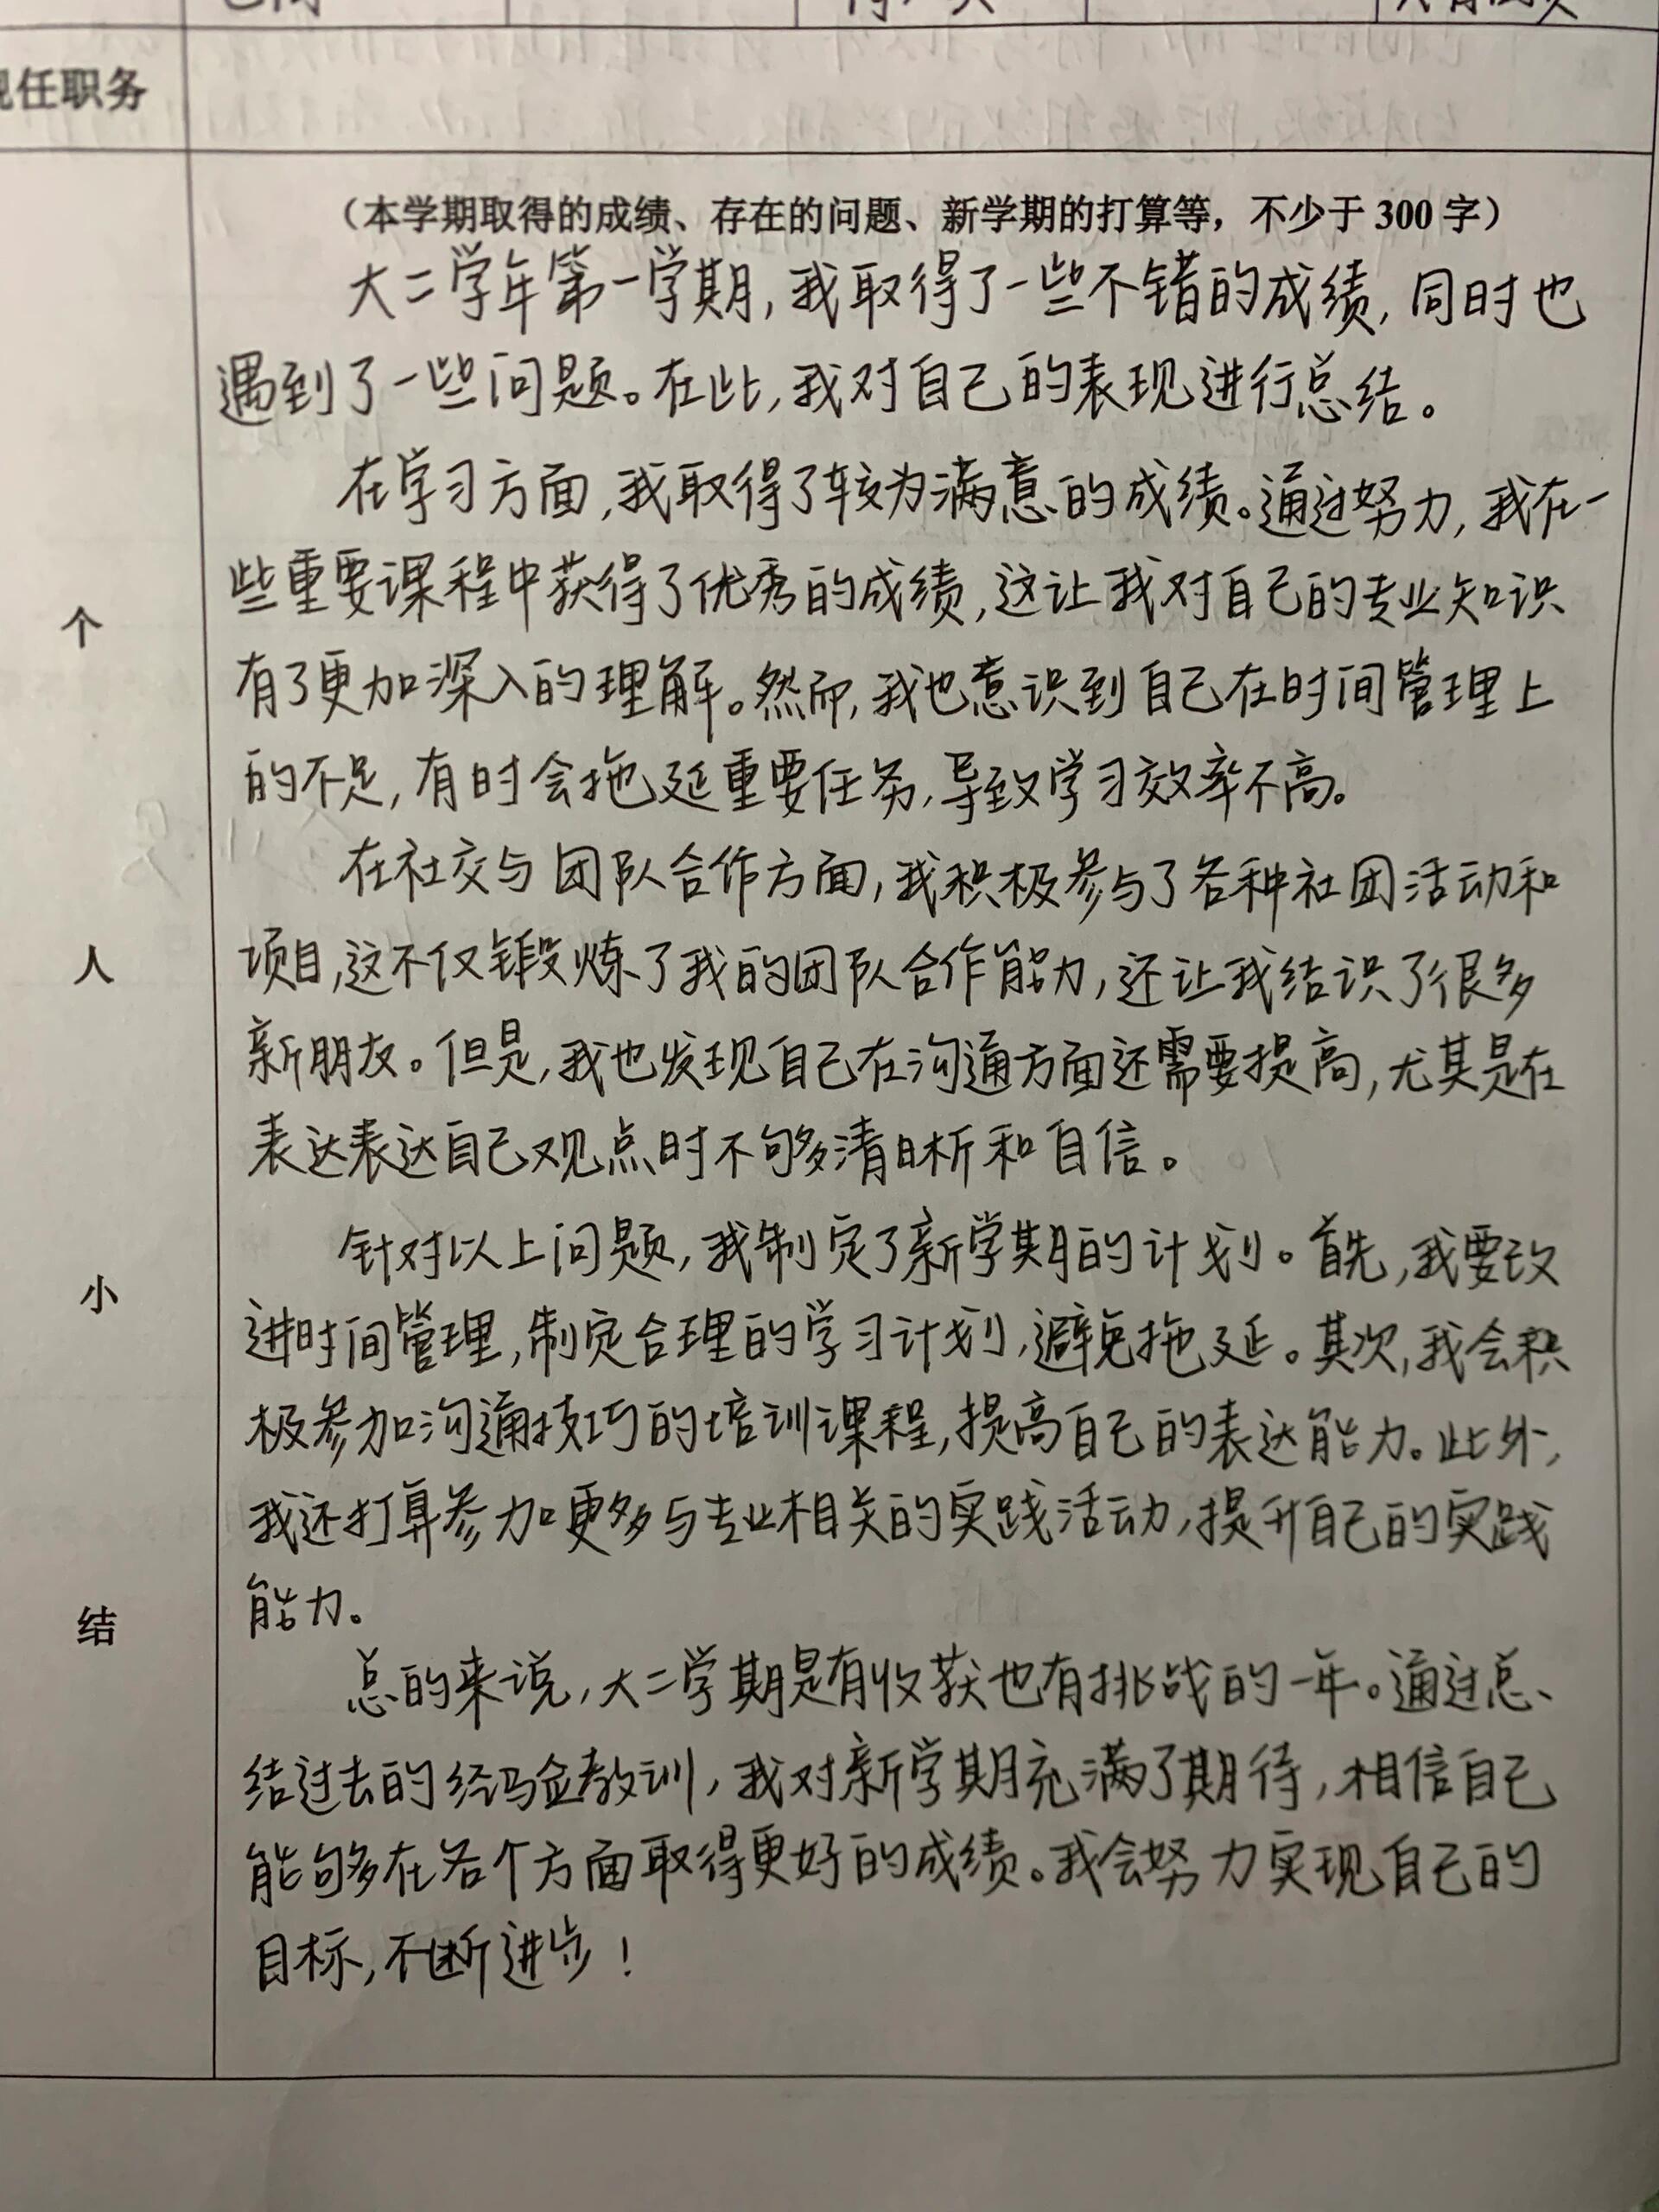 现任职务
（本学期取得的成绩、存在的问题、新学期的打算等，不少于 300 字）
大二学年第一学期，我取得了一些不错的成绩，同时也
遇到了一些问题。在此，我对自己的表现进行总结。
在学习方面，我取得了较为满意的成绩。通过努力，我在一
些重要课程中获得了优秀的成绩，这让我对自己的专业知识
有了更加深入的理解。然而，我也意识到自己在时间管理上
的不足，有时会拖延重要任务，导致学习效率不高。
在社交与团队合作方面，我积极参与了各种社团活动和
项目，这不仅锻炼了我的团队合作能力，还让我结识了很多
新朋友。但是，我也发现自己在沟通方面还需要提高，尤其是在
表达表达自己观点时不够清晰和自信。
针对以上问题，我制定了新学期的计划。首先，我要改
进时间管理，制定合理的学习计划，避免拖延。其次，我会积
极参加沟通技巧的培训课程，提高自己的表达能力。此外，
我还打算参加更多与专业相关的实践活动，提升自己的实践
能力。
总的来说，大二学期是有收获也有挑战的一年。通过总
结过去的经验教训，我对新学期充满了期待，相信自己
能够在各个方面取得更好的成绩。我会努力实现自己的
目标，不断进步！
个
人
小
结